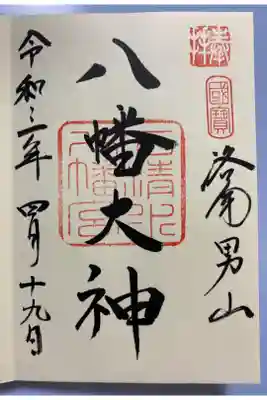 奉拝
國寶
洛南男山
八幡大神
石清水
八幡宮
令和三年 四月十九日